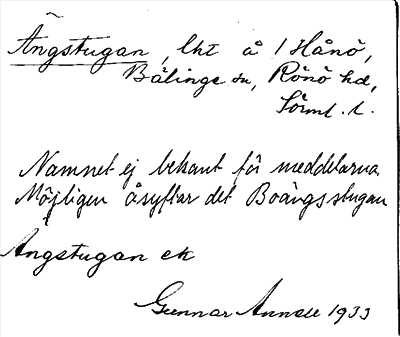 Ängstugan, lht å 1 Hånö,
Bälinge sn, Rönö hd,
Sörml. l.
Namnet ej bekant för meddelarna
Möjligen åsyftar det Boängsstugan
Ängstugan ek
Gunnar 1933